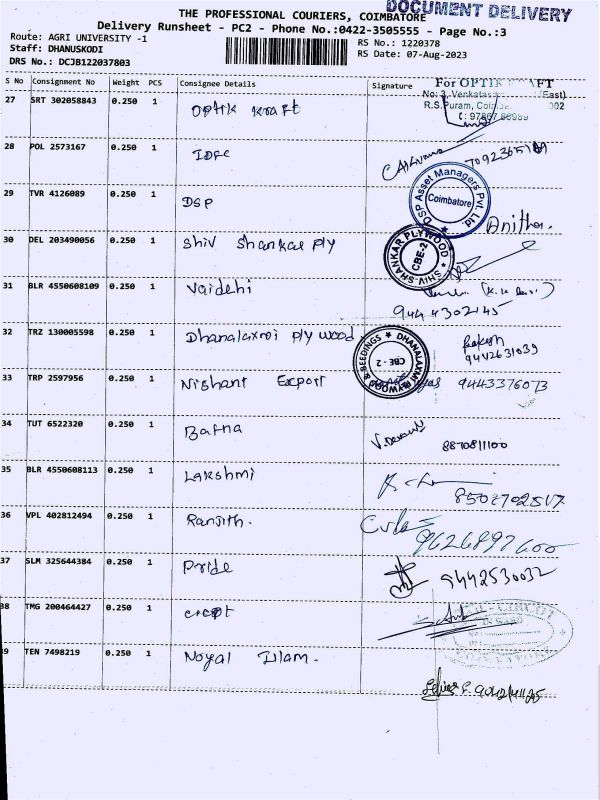 DOCUMENT DELIVERY
THE PROFESSIONAL COURIERS, COIMBATORE
Delivery Runsheet - PC2 - Phone No.:0422-3505555 - Page No.:3
Route: AGRI UNIVERSITY -1
RS No.: 1220378
Staff: DHANUSKODI
RS Date: 07-Aug-2023
DRS No.: DCJB122037803
S No Consignment No Weight PCS Consignee Details Signature
For OPTIK
No: 3, (East)
R.S.Puram, 002
27 SRT 302058843 0.250 1 Optik Kraft
28 POL 2573167 0.250 1 IDFC
DSP Asset Managers Pvt. Ltd Coimbatore
29 TVR 4126089 0.250 1 DSP Anitha.
30 DEL 203490056 0.250 1 Shiv Shankar Ply
SHIV-SHANKAR PLYWOOD CBE-2
31 BLR 4550608109 0.250 1 Vaidehi
9444302145
32 TRZ 130005598 0.250 1 Dhanalaxmi Plywood
9442631039
DHANALAXMI PLYWOOD & BEEDINGS CBE - 2
33 TRP 2597956 0.250 1 Nishant Export 9443376073
34 TUT 6522320 0.250 1 Bafna
8870811100
35 BLR 4550608113 0.250 1 Lakshmi
36 VPL 402812494 0.250 1 Ranjith.
37 SLM 325644384 0.250 1 Pride 9442530032
38 TMG 200464427 0.250 1
39 TEN 7498219 0.250 1 Noyal Illam.